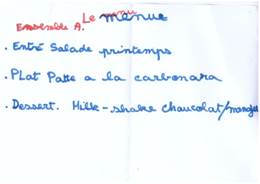 Le menu
Ensemble A. menus
. Entré Salade printemps
. Plat Patte a la carbonara
. Dessert. Milk-shake chaucolat/mangue